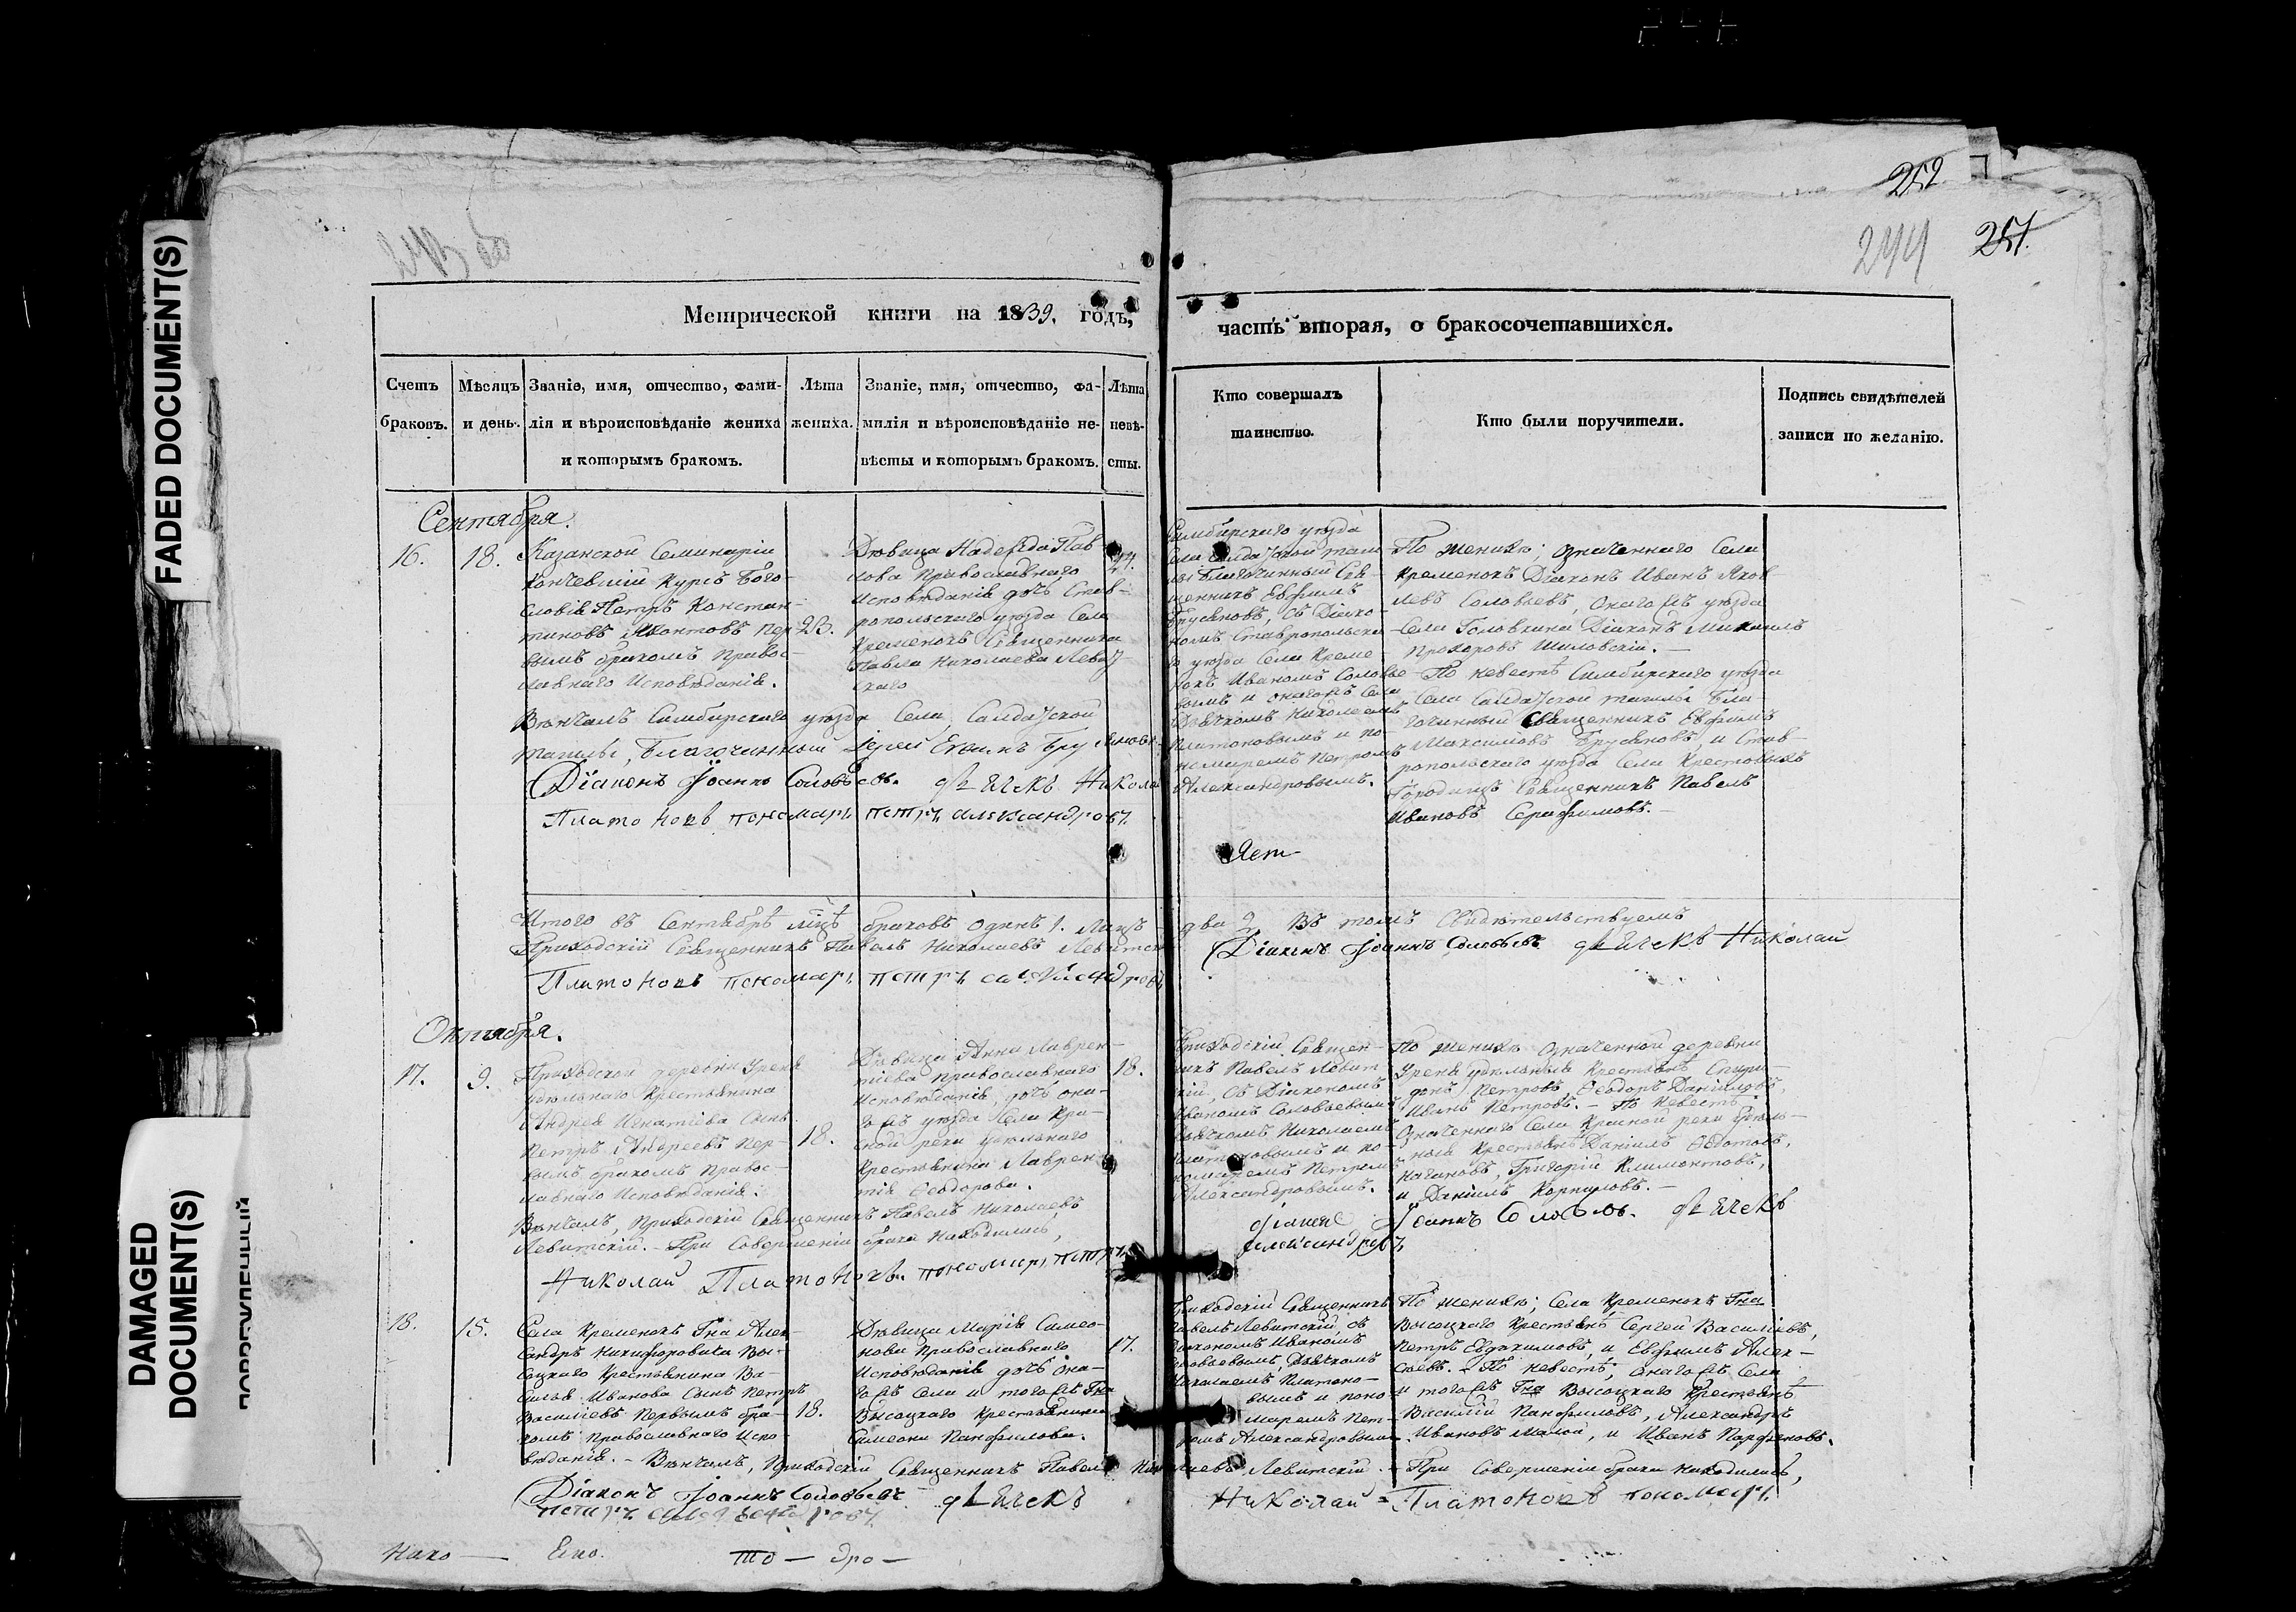 FADED DOCUMENT(S)
DAMAGED
DOCUMENT(S)
252
244
251.
Метрической книги на 1839. годъ,
часть вторая, о бракосочетавшихся.
Счетъ
браковъ.
Мѣсяцъ
и день.
Званіе, имя, отчество, фами-
лія и вѣроисповѣданіе жениха
и которымъ бракомъ.
Лѣта
жениха.
Званіе, имя, отчество, фа-
милія и вѣроисповѣданіе не-
вѣсты и которымъ бракомъ.
Лѣта
невѣ-
сты.
Кто совершалъ
таинство.
Кто были поручители.
Подпись свидѣтелей
записи по желанію.
Сентября.
16.
18.
Казанской Семинаріи
кончевшій курсъ Бого-
словія Петръ Констан-
тиновъ пер-
вымъ бракомъ Правос-
лавнаго Исповѣданія.
23.
Дѣвица Надежда Пав-
лова Православнаго
Исповѣданія дочь Став-
ропольскаго уѣзда Села
Кременокъ Священника
Павла Николаева Левит-
скаго
24.
Симбирскаго уѣзда
Села
Благочинный Свя-
щенникъ Евфимъ
съ Діако-
номъ Ставропольска-
го уѣзда Села Креме-
нокъ Иваномъ Соловье-
вымъ и онагожъ Села
Дьячкомъ Николаемъ
Платоновымъ и по-
номаремъ Петромъ
Александровымъ.
По женихѣ; означеннаго Села
Кременокъ Діаконъ Иванъ Яков-
левъ Соловьевъ, онагожъ уѣзда
Села Головкина Діаконъ Михаилъ
Прохоровъ Шиловскій.—
По невестѣ Симбирскаго уѣзда
Села Тагилы Бла-
гочинный Священникъ Евфимъ
Максимовъ и Став-
ропольскаго уѣзда Села Крестовыхъ
Городищъ Священникъ Павелъ
Ивановъ Серафимовъ.—
Вѣнчалъ Симбирскаго уѣзда Села
Благочинный Іерей
Діаконъ Іоаннъ Соловьевъ. дьячекъ Никола
Платоновъ пономарь петръ александровъ.
Итого въ Сентябрѣ мцѣ браковъ одинъ 1. Лицъ два 2, Въ томъ Свидѣтельствуемъ
Приходскій Священникъ Павелъ Николаевъ Левитск
Діаконъ Іоаннъ Соловьевъ дьячекъ Николай
Платоновъ пономарь петръ александровъ
Октября.
17.
9.
Приходской деревни
удѣльнаго Крестьянина
Андрея Игнатіева Сынъ
Петръ Андреевъ пер-
вымъ бракомъ Правос-
лавнаго Исповѣданія.
18.
Дѣвица Анна Лаврен-
тіева Православнаго
Исповѣданія, дочь она-
гожъ уѣзда Села Кра-
сной реки удѣльнаго
Крестьянина Лаврен-
тія Ѳеодорова.
18.
Приходскій Священ-
никъ Павелъ Левит-
скій, съ Діакономъ
Иваномъ Соловьевымъ
дьячкомъ Николаемъ
Платоновымъ и по-
номаремъ Петромъ
Александровымъ.
По женихѣ означенной деревни
удѣльныя Крестьянѣ Спири-
донъ Петровъ, Ѳеодоръ Даниловъ,
Иванъ Петровъ.— По Невестѣ
Означеннаго Села Красной реки удѣль-
ныя Крестьянѣ Даніилъ
Григорій Климонтовъ,
и Даніилъ Корниловъ.—
Вѣнчалъ, Приходскій Священникъ Павелъ Николаевъ
Левитскій.— При Совершеніи брака Находились,
діаконъ Іоаннъ Соловьевъ. дьячекъ
Николай Платоновъ. пономарь петръ
александровъ
18.
15.
Села Кременокъ Гна Алек-
сандръ Никифоровича Вы-
соцкаго Крестьянина Ва-
силья Иванова Сынъ Петръ
Василіевъ Первымъ бра-
комъ Православнаго Испо-
вѣданія.—
18.
Дѣвица Марія Симео-
нова Православнаго
Исповѣданія дочь она-
гожъ Села и тогожъ Гна
Высоцкаго Крестьянина
Симеона Панфилова.
17.
Приходскій Священникъ
Павелъ Левитскій, съ
Діакономъ Иваномъ
Соловьевымъ, Дьячкомъ
Николаемъ Платоно-
вымъ и поно-
маремъ Пет-
ромъ Александровымъ
По женихѣ; Села Кременокъ Гна
Высоцкаго Крестьянѣ Сергей Василіевъ,
Петръ Евдокимовъ, и Евфимъ Алек-
сеевъ.— По невестѣ; Онагожъ Села
и тогожъ Гна Высоцкаго Крестьянѣ
Василій Панфиловъ, Александръ
Ивановъ Малой, и Иванъ Парфеновъ.
Вѣнчалъ, Приходскій Священникъ Павелъ Николаевъ Левитскій.— При Совершеніи брака Находились,
Діаконъ Іоаннъ Соловьевъ дьячекъ Николай Платоновъ пономарь
петръ александровъ